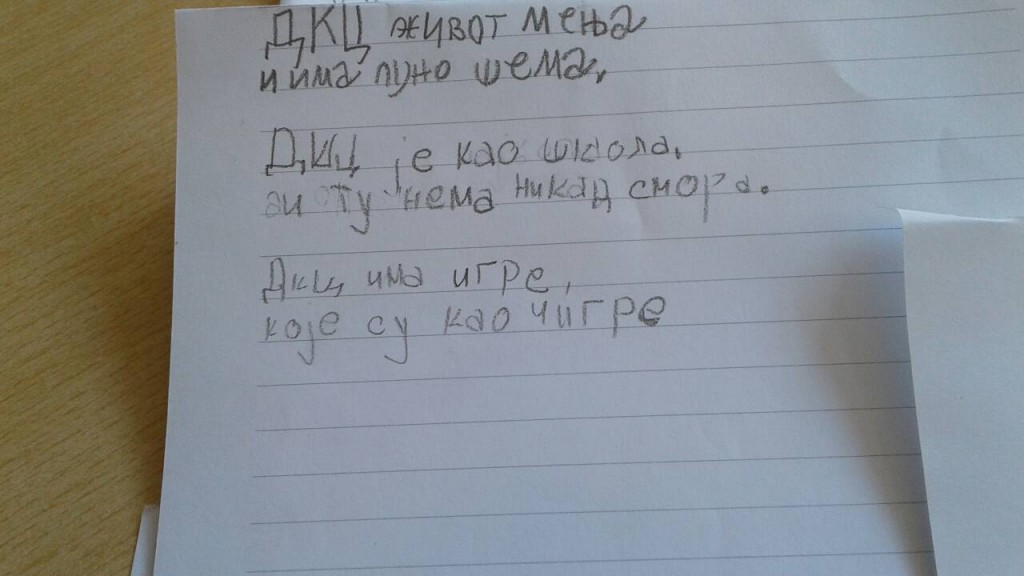 ДКЦ живот мења
и има пуно шема,
ДКЦ је као школа,
али ту нема никад смора.
Дкц има игре,
које су као чигре